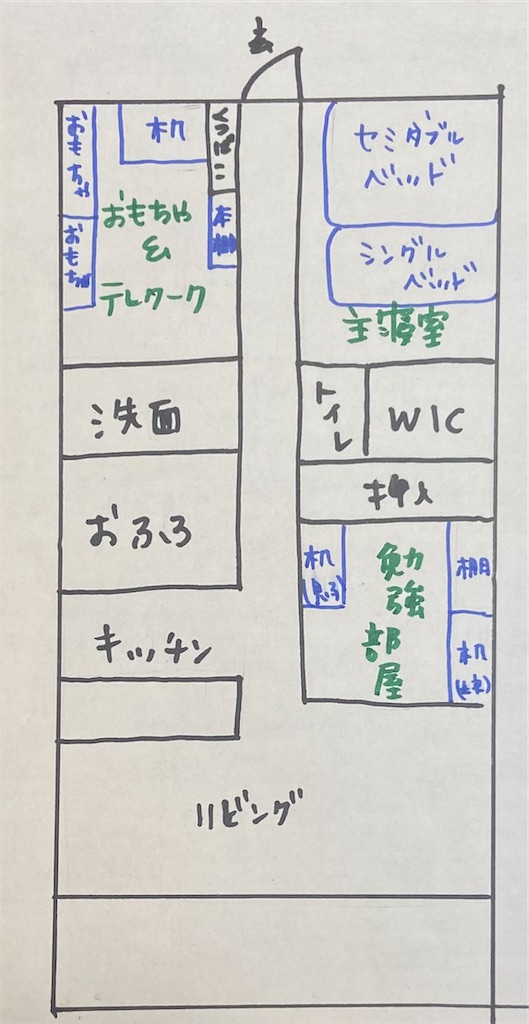 玄
おもちゃ
机
くつばこ
セミダブル
ベッド
おもちゃ
&
テレワーク
本棚
おもちゃ
シングル
ベッド
主寝室
洗面
トイレ
WIC
押入
おふろ
机
勉強部屋
棚
キッチン
机
リビング